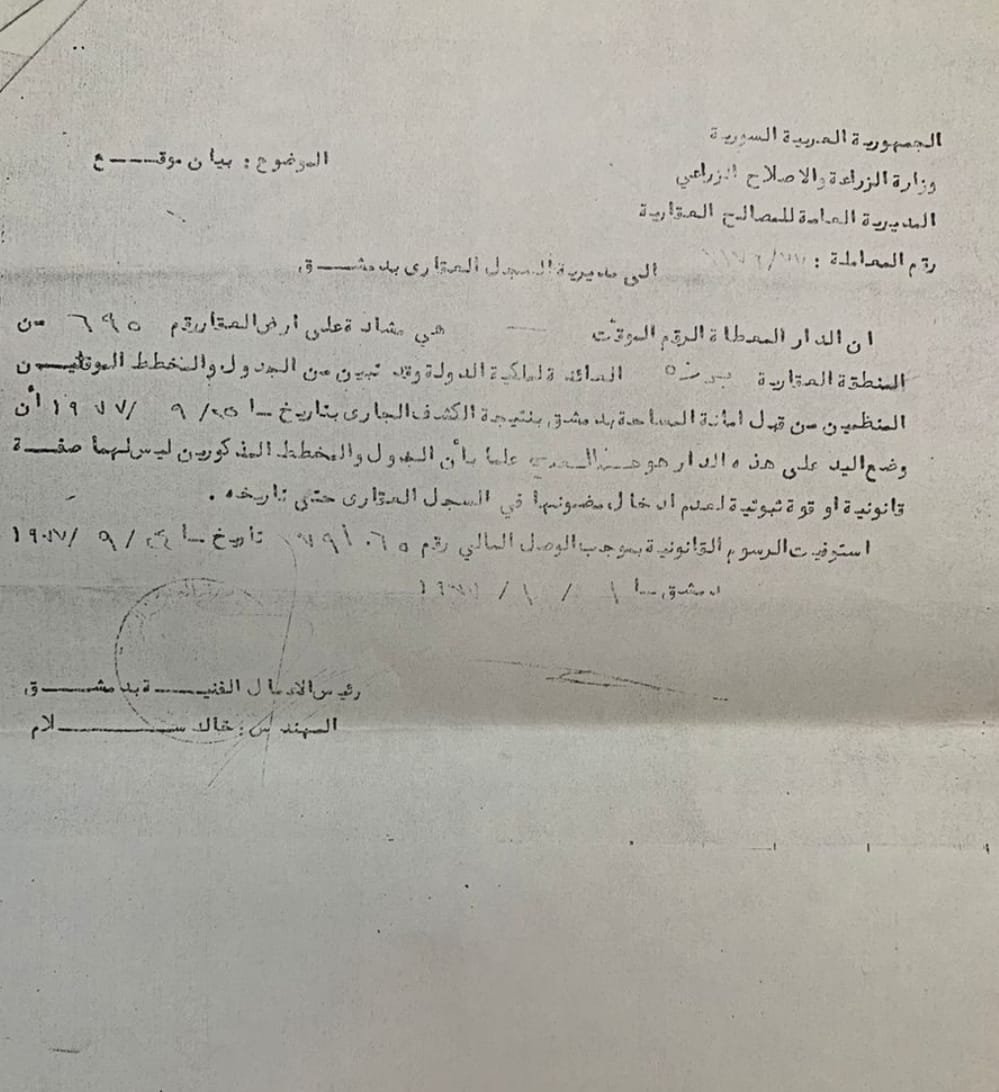 الجمهورية العربية السورية
وزارة الزراعة والاصلاح الزراعي
الموضوع : بيان موقـــع
المديرية العامة للمصالح العقارية
رقم المعاملة :
الى مديرية السجل العقارى بدمشــق
ان الدار المعطاة الرقم الموقت — هي مشادة على ارض العقار رقم ٦٩٥ من
المنطقة العقارية برزه العائدة لملكية الدولة وقد تبين من الجدول والمخطط الموقتيــن
المنظمين من قبل امانة المساحة بدمشق بنتيجة الكشف الجارى بتاريخ ٩/ ١٩٧٧ أن
وضع اليد على هذه الدار هو علما بأن الجدول والمخطط المذكورين ليس لهما صفــة
قانونية او قوة ثبوتية لعدم ادخال مضمونها في السجل العقارى حتى تاريخه .
استوفيت الرسوم القانونية بموجب الوصل المالي رقم تاريخ ٩/
دمشق
رئيس الاعمال الفنيــــة بدمشــــق
المهندس : خالد ســــــلام